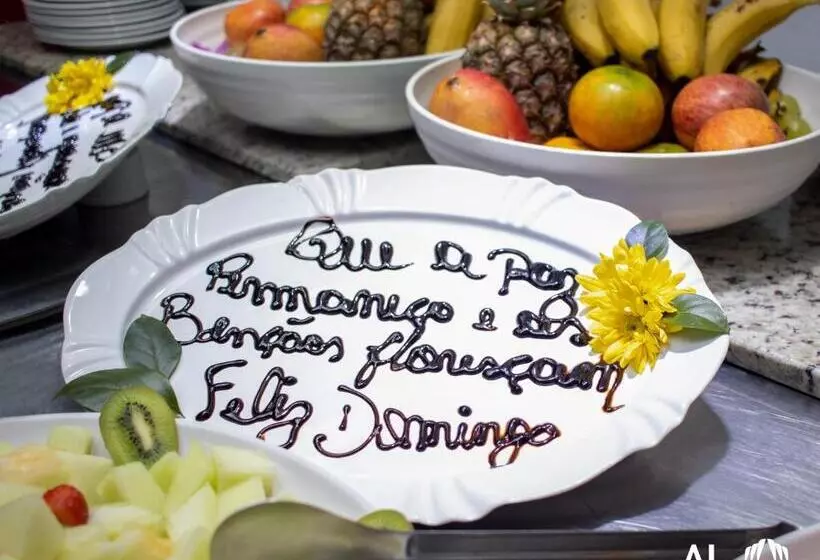 Que a paz
Permaneça e as
Bençãos floresçam
Feliz Domingo
AL